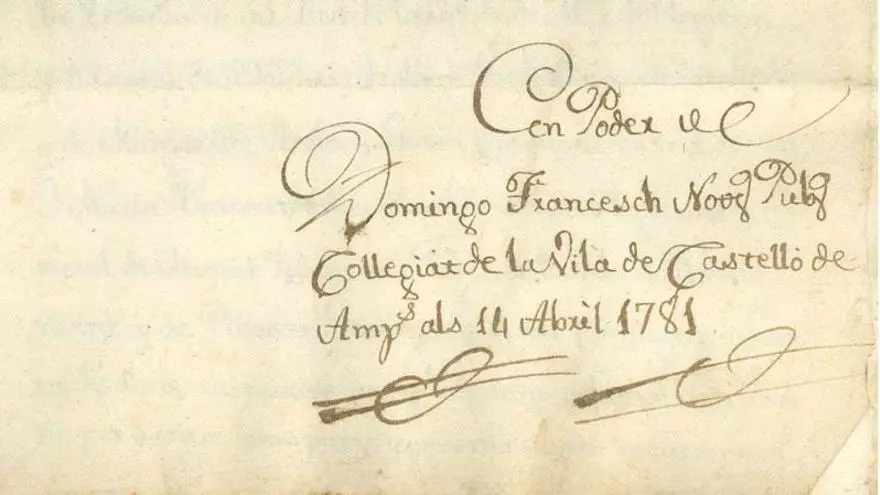 En Poder de
Domingo Francesch Notᵃ Pubᶜ
Collegiat de la Vila de Castelló de
Ampˢ als 14 Abril 1781